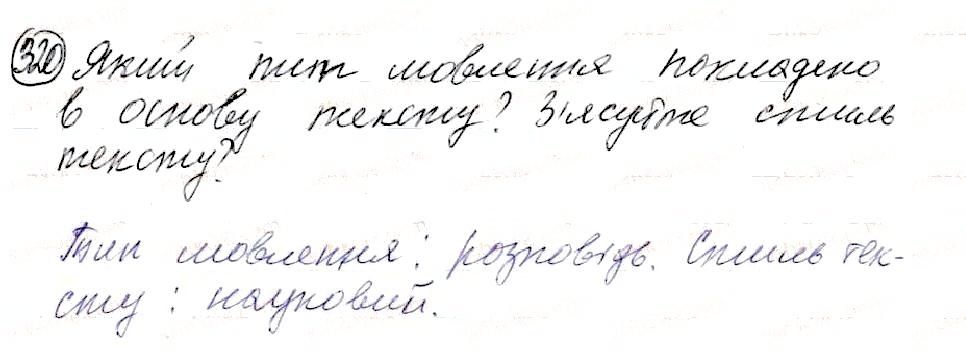 320 Який тип мовлення покладено
в основу тексту? З'ясуйте стиль
тексту?
Тип мовлення: розповідь. Стиль тек-
сту: науковий.